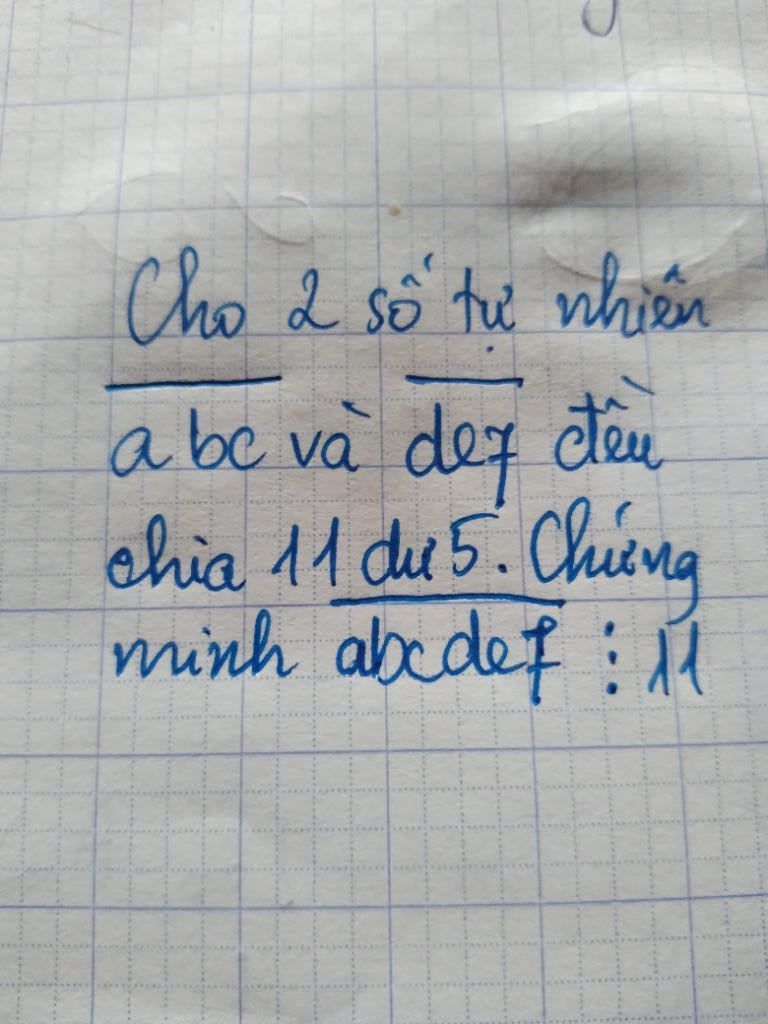 Cho 2 số tự nhiên
abc và def đều
chia 11 dư 5. Chứng
minh abcdef ⋮ 11